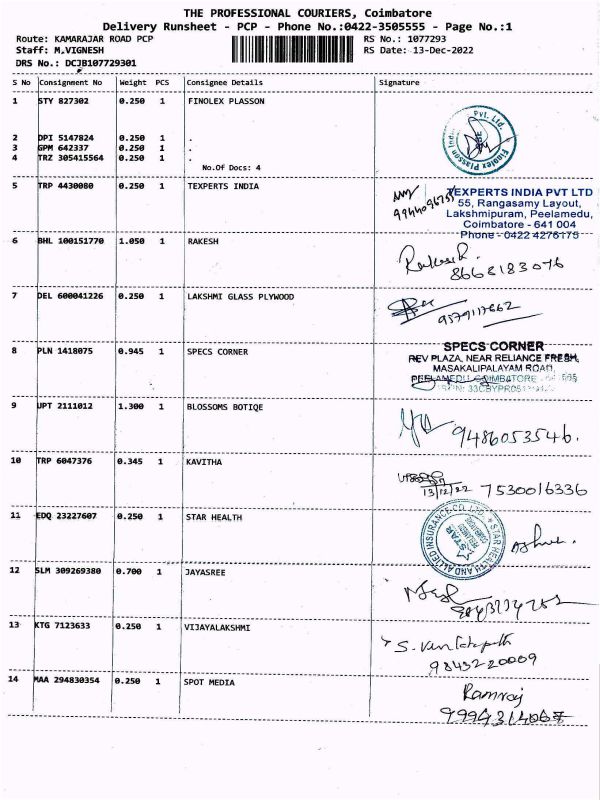 THE PROFESSIONAL COURIERS, Coimbatore
Delivery Runsheet - PCP - Phone No.:0422-3505555 - Page No.:1
Route: KAMARAJAR ROAD PCP RS No.: 1077293
Staff: M,VIGNESH RS Date: 13-Dec-2022
DRS No.: DCJB107729301
S No Consignment No Weight PCS Consignee Details Signature
1 STY 827302 0.250 1 FINOLEX PLASSON
Finolex Plasson Pvt. Ltd.
2 DPI 5147824 0.250 1 .
3 GPM 642337 0.250 1 .
4 TRZ 305415564 0.250 1 .
No.Of Docs: 4
5 TRP 4430080 0.250 1 TEXPERTS INDIA
TEXPERTS INDIA PVT LTD
55, Rangasamy Layout,
Lakshmipuram, Peelamedu,
Coimbatore - 641 004
Phone - 0422 4276175
6 BHL 100151770 1.050 1 RAKESH
Rakesh.R
8668183076
7 DEL 600041226 0.250 1 LAKSHMI GLASS PLYWOOD
9579117662
8 PLN 1418075 0.945 1 SPECS CORNER
SPECS CORNER
REV PLAZA, NEAR RELIANCE FRESH,
MASAKALIPALAYAM ROAD,
PEELAMEDU, COIMBATORE
9 UPT 2111012 1.300 1 BLOSSOMS BOTIQE
9486053546.
10 TRP 6047376 0.345 1 KAVITHA
13/12/22 7530016336
11 EDQ 23227607 0.250 1 STAR HEALTH
STAR HEALTH AND ALLIED INSURANCE CO. LTD.
STAR
12 SLM 309269380 0.700 1 JAYASREE
13 KTG 7123633 0.250 1 VIJAYALAKSHMI
9843220009
14 MAA 294830354 0.250 1 SPOT MEDIA
Ramraj
9994314067